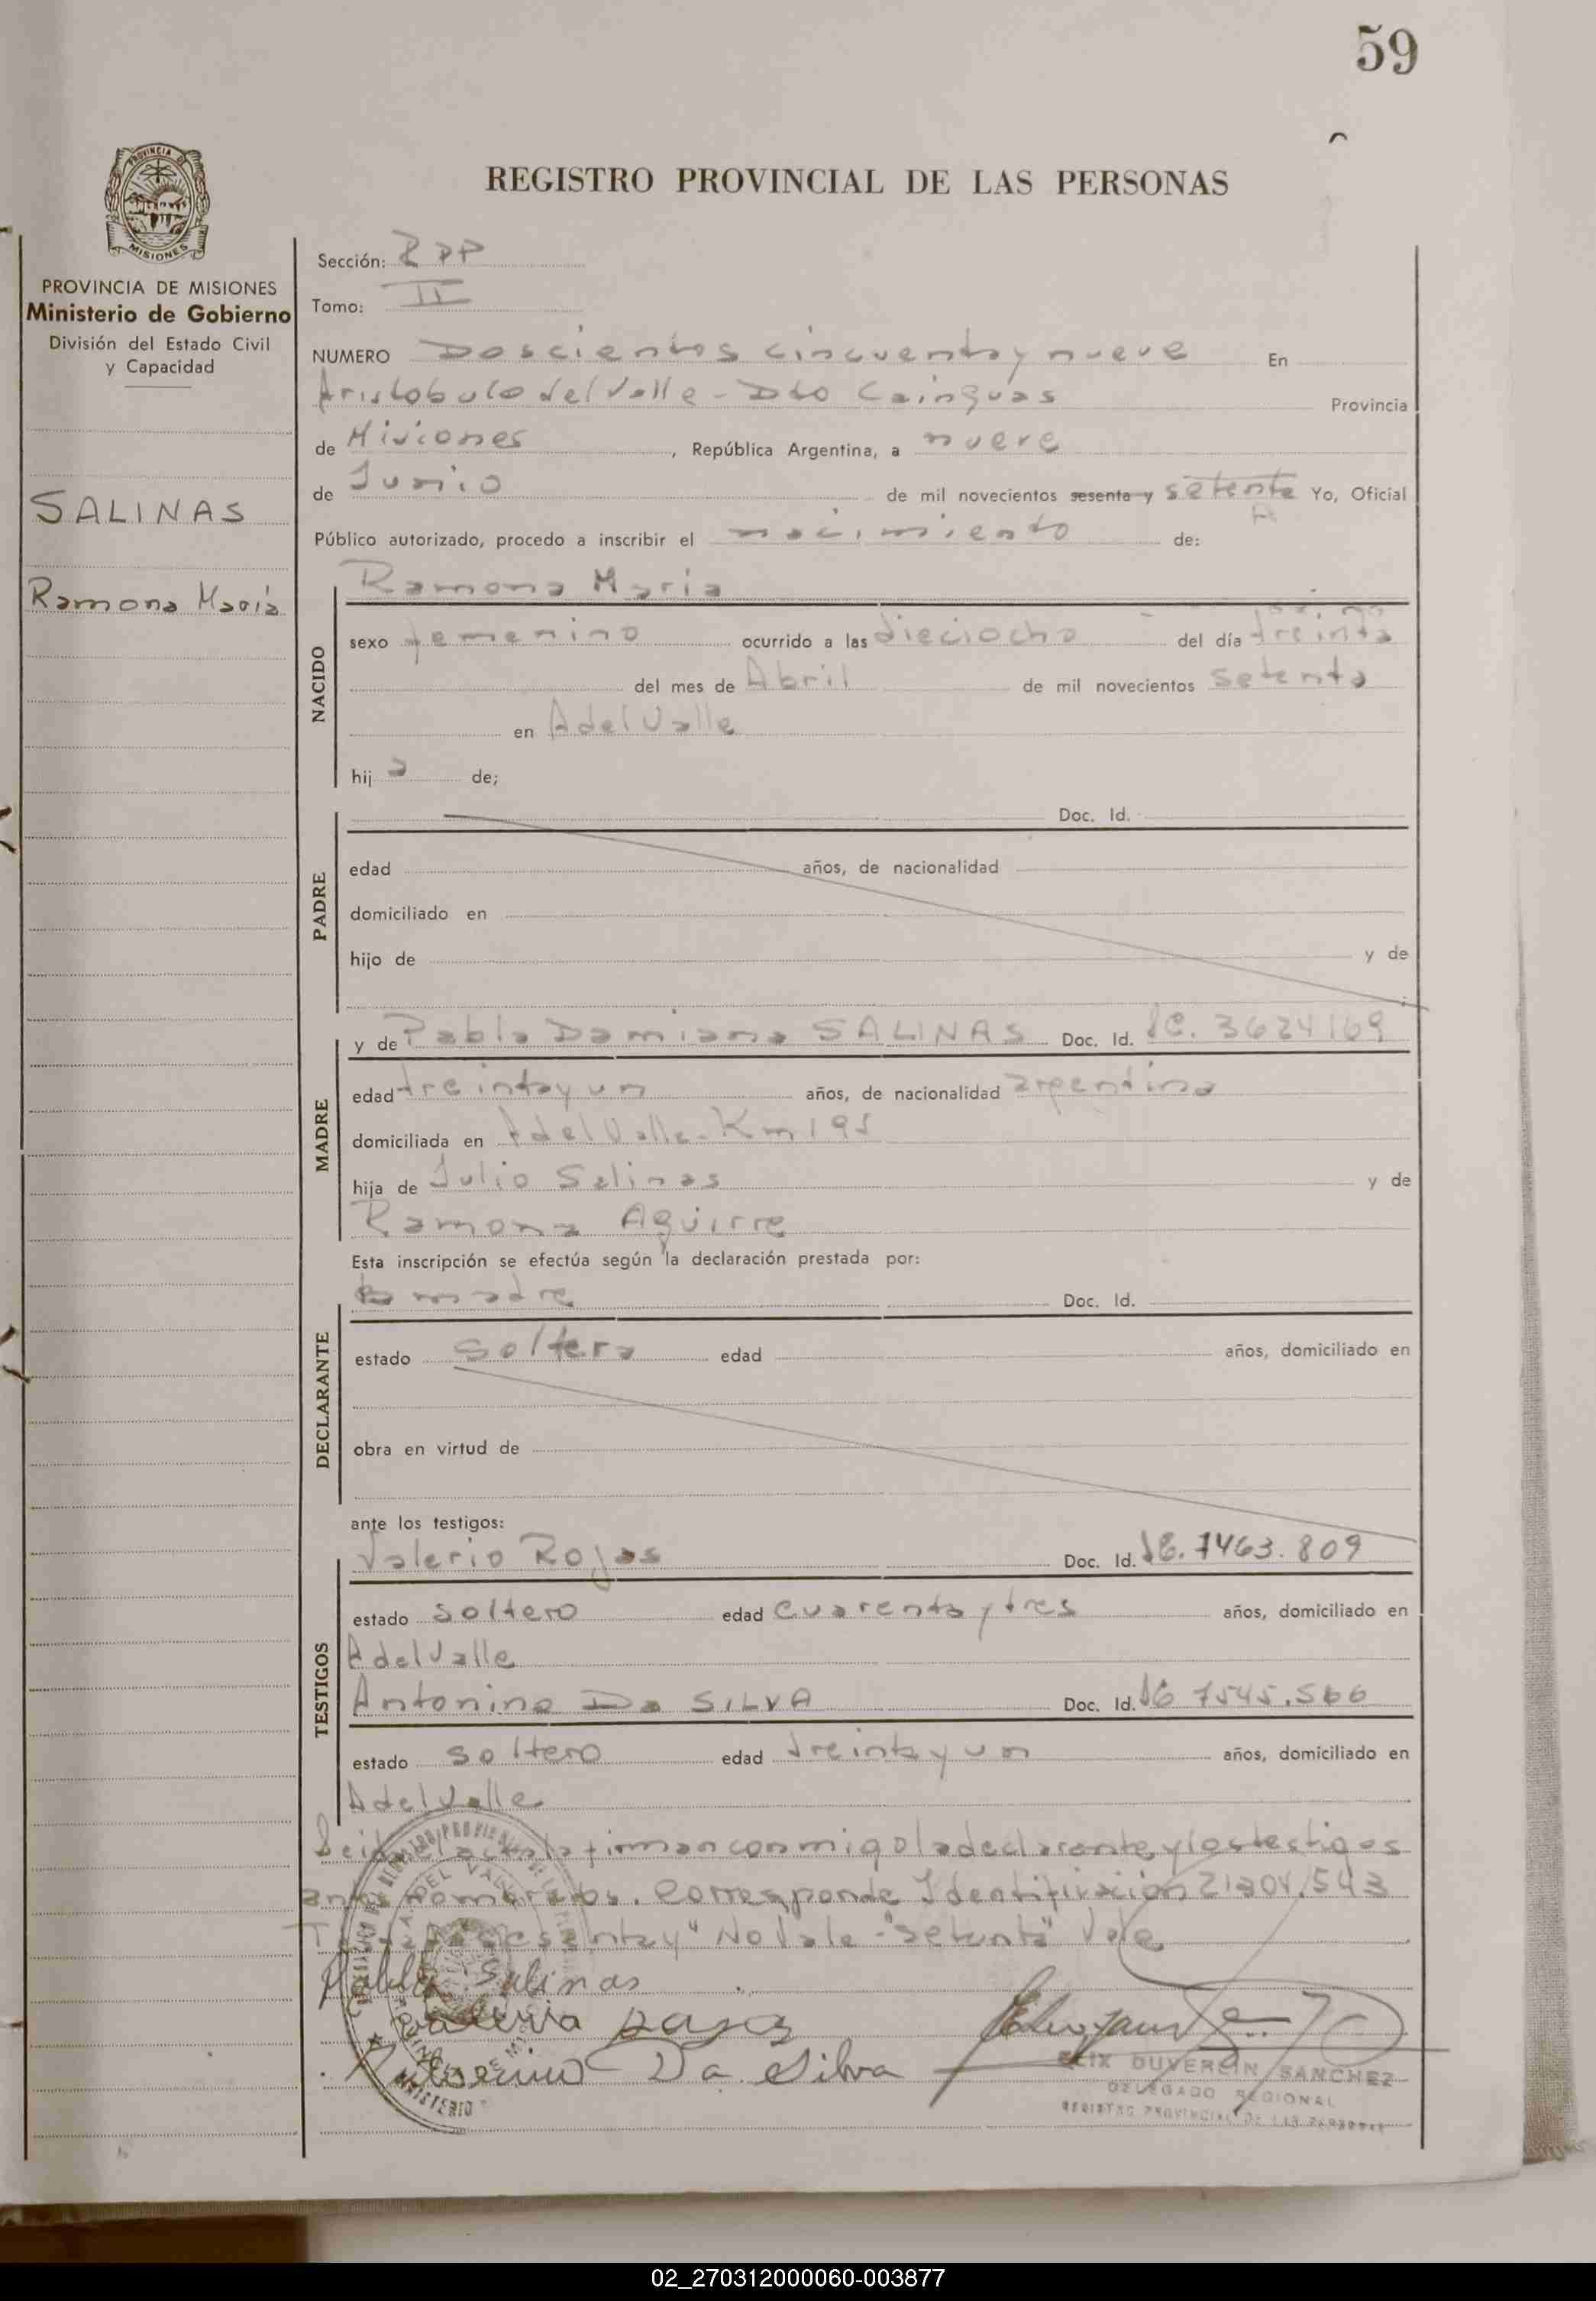 59
REGISTRO PROVINCIAL DE LAS PERSONAS
PROVINCIA DE
MISIONES
PROVINCIA DE MISIONES
Ministerio de Gobierno
División del Estado Civil
y Capacidad
SALINAS
Ramona María
Sección: RPP
Tomo: II
NUMERO Doscientos cincuenta y nueve En
Aristobulo del Valle - Dto Cainguas Provincia
de Misiones, República Argentina, a nueve
de Junio de mil novecientos sesenta y setenta Yo, Oficial
Público autorizado, procedo a inscribir el nacimiento de:
NACIDO
Ramona Maria
sexo femenino ocurrido a las dieciocho del día treinta
del mes de Abril de mil novecientos setenta
en A del Valle
hija de;
PADRE
Doc. Id.
edad años, de nacionalidad
domiciliado en
hijo de y de
MADRE
y de Pabla Damiana SALINAS Doc. Id. LC. 3624169
edad treinta y un años, de nacionalidad argentina
domiciliada en A del Valle - Km 195
hija de Julio Salinas y de
Ramona Aguirre
Esta inscripción se efectúa según la declaración prestada por:
DECLARANTE
la madre Doc. Id.
estado soltera edad años, domiciliado en
obra en virtud de
ante los testigos:
TESTIGOS
Valerio Rojas Doc. Id. LE. 7463.809
estado soltero edad cuarenta y tres años, domiciliado en
A del Valle
Antonino Da SILVA Doc. Id. LE 7545.566
estado soltero edad treinta y un años, domiciliado en
A del Valle
Leida el acta la firman conmigo la declarante y los testigos
antes nombrados. Corresponde Identificación 21304.543
"sesenta y" No Vale - "setenta" Vale
Pabla Salinas
Valerio
Antonino Da Silva
FELIX DUVERLIN SANCHEZ
DELEGADO REGIONAL
REGISTRO PROVINCIAL DE LAS PERSONAS
02_270312000060-003877